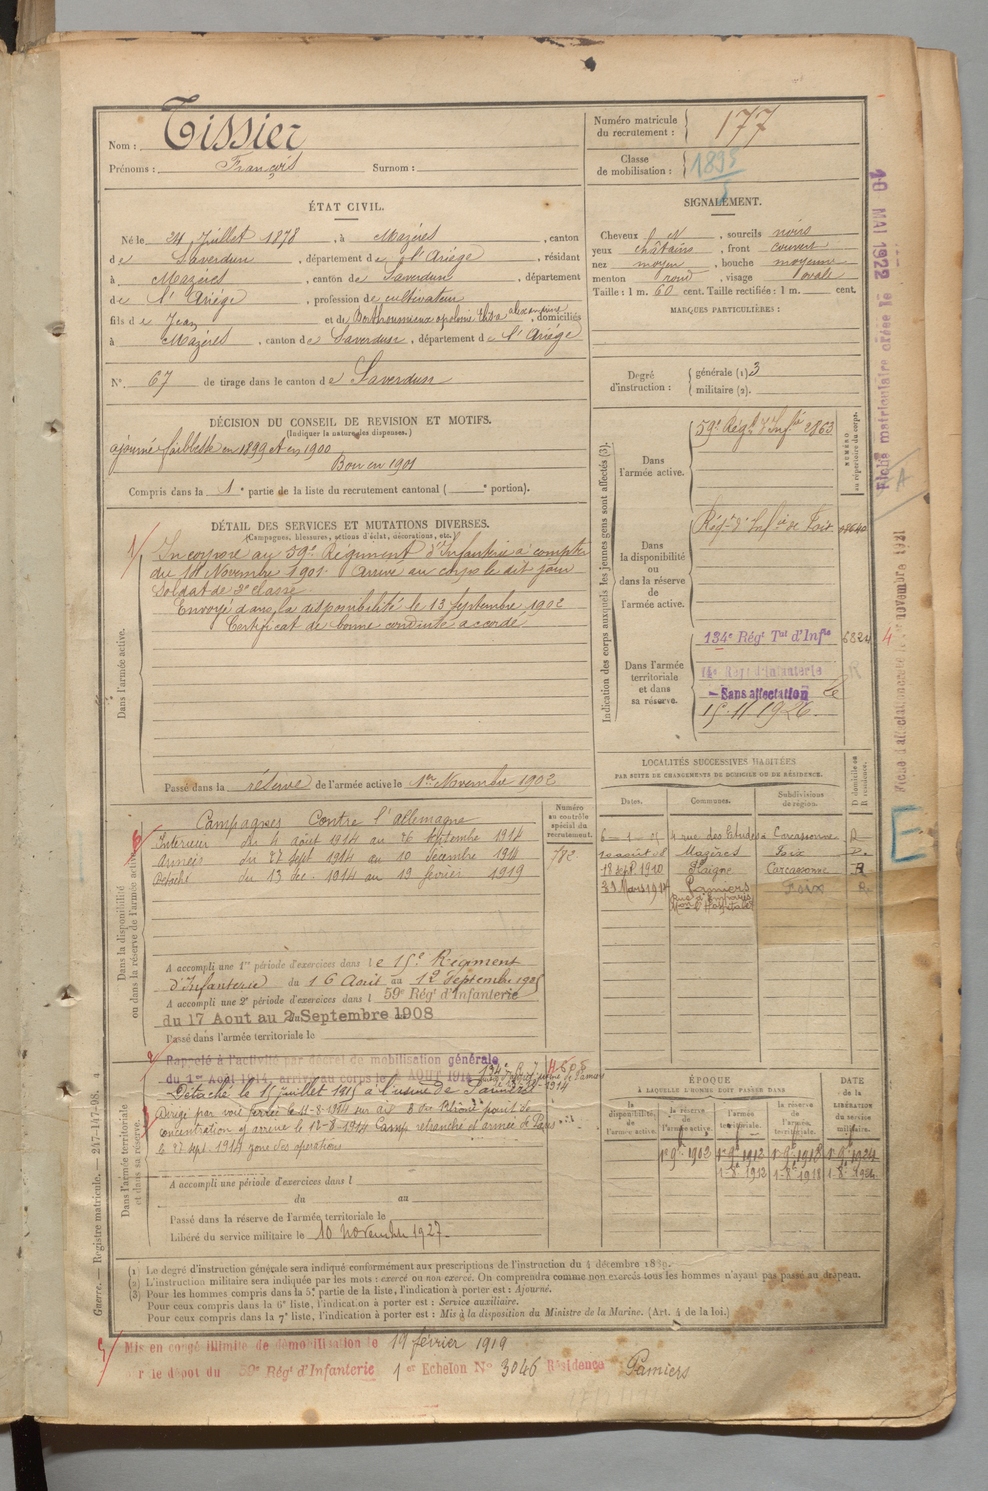 Nom : Tissier
Prénoms : François Surnom :
Numéro matricule du recrutement : 177
Classe de mobilisation : 1895
ÉTAT CIVIL.
Né le 24 Juillet 1878, à Mazères, canton
de Saverdun, département de l'Ariége, résidant
à Mazères, canton de Saverdun, département
de l'Ariége, profession de cultivateur
fils de Jean et de Berthoumieux apolonie Eliza alexandrine, domiciliés
à Mazères, canton de Saverdun, département de l'Ariége
N° 67 de tirage dans le canton de Saverdun
SIGNALEMENT.
Cheveux d N, sourcils noirs
yeux châtains, front couvert
nez moyen, bouche moyenne
menton rond, visage ovale
Taille : 1 m. 60 cent. Taille rectifiée : 1 m. cent.
MARQUES PARTICULIÈRES :
Degré d'instruction : générale (1) 3
militaire (2).
DÉCISION DU CONSEIL DE REVISION ET MOTIFS.
(Indiquer la nature des dispenses.)
ajourné faiblesse en 1899 et en 1900
Bon en 1901
Compris dans la 1e partie de la liste du recrutement cantonal ( e portion).
DÉTAIL DES SERVICES ET MUTATIONS DIVERSES.
(Campagnes, blessures, actions d'éclat, décorations, etc.)
Dans l'armée active.
1/ Incorporé au 59e Régiment d'Infanterie à compter
du 14 Novembre 1901. Arrivé au corps le dit jour
Soldat de 2e classe
Envoyé dans la disponibilité le 13 Septembre 1902
Certificat de bonne conduite accordé
Passé dans la réserve de l'armée active le 1er Novembre 1902
Indication des corps auxquels les jeunes gens sont affectés (3).
NUMÉRO au répertoire du corps.
Dans l'armée active.
59e Régt d'Infie 2863
Dans la disponibilité ou dans la réserve de l'armée active.
Régt d'Infie de Foix 08640
Dans l'armée territoriale et dans sa réserve.
134e Régt Tal d'Infie 6824
14e Rég d'Infanterie
Sans affectation le
15.11.1926.
Dans la disponibilité ou dans la réserve de l'armée active.
Numéro au contrôle spécial du recrutement.
782
Campagnes Contre l'allemagne
Intérieur du 4 août 1914 au 26 Septembre 1914
Armées du 27 Sept 1914 au 10 décembre 1914
Détaché du 13 déc. 1914 au 19 février 1919
A accompli une 1re période d'exercices dans le 15e Régiment
d'Infanterie du 16 Août au 12 Septembre 1905
A accompli une 2e période d'exercices dans l 59e Régt d'Infanterie
du 17 Aout au 2 Septembre 1908
Passé dans l'armée territoriale le
LOCALITÉS SUCCESSIVES HABITÉES
PAR SUITE DE CHANGEMENTS DE DOMICILE OU DE RÉSIDENCE.
Dates. Communes. Subdivisions de région. D domicile ou R résidence.
4 rue des Etudes Carcassonne R
Mazères Foix
18 Sept 1910 Plaigne Carcassonne R
Mars 1914 Pamiers Foix R
Dans l'armée territoriale et dans sa réserve.
Rappelé à l'activité par décret de mobilisation générale
du 1er Août 1914, arrivé au corps le AOUT 1914
Détaché le 15 juillet 1915 à l'usine de Pamiers
Dirigé par voie ferrée le 11-8-1914 sur
concentration y arrivé le 12-8-1914 Camp retranché et armée de Paris
le 27 sept. 1914 zone des opérations
A accompli une période d'exercices dans l
du au
Passé dans la réserve de l'armée territoriale le
Libéré du service militaire le 10 novembre 1927.
ÉPOQUE
À LAQUELLE L'HOMME DOIT PASSER DANS
la disponibilité de l'armée active. la réserve de l'armée active. l'armée territoriale. la réserve de l'armée territoriale.
DATE de la LIBÉRATION du service militaire.
1er 9b 1902 1er 9b 1912 1er 9b 1918 1er 9b 1924
1-8 1912 1-8 1918 1-8
(1) Le degré d'instruction générale sera indiqué conformément aux prescriptions de l'instruction du 4 décembre 1889.
(2) L'instruction militaire sera indiquée par les mots : exercé ou non exercé. On comprendra comme non exercés tous les hommes n'ayant pas passé au drapeau.
(3) Pour les hommes compris dans la 5e partie de la liste, l'indication à porter est : Ajourné.
Pour ceux compris dans la 6e liste, l'indication à porter est : Service auxiliaire.
Pour ceux compris dans la 7e liste, l'indication à porter est : Mis à la disposition du Ministre de la Marine. (Art. 4 de la loi.)
Mis en congé illimité de démobilisation le 19 février 1919
le dépot du 59e Régt d'Infanterie 1er Echelon N° 3046 Résidence Pamiers
Guerre. — Registre matricule. — 247-147-98.
Fiche matriculaire créée le 10 MAI 1922
A
4
E